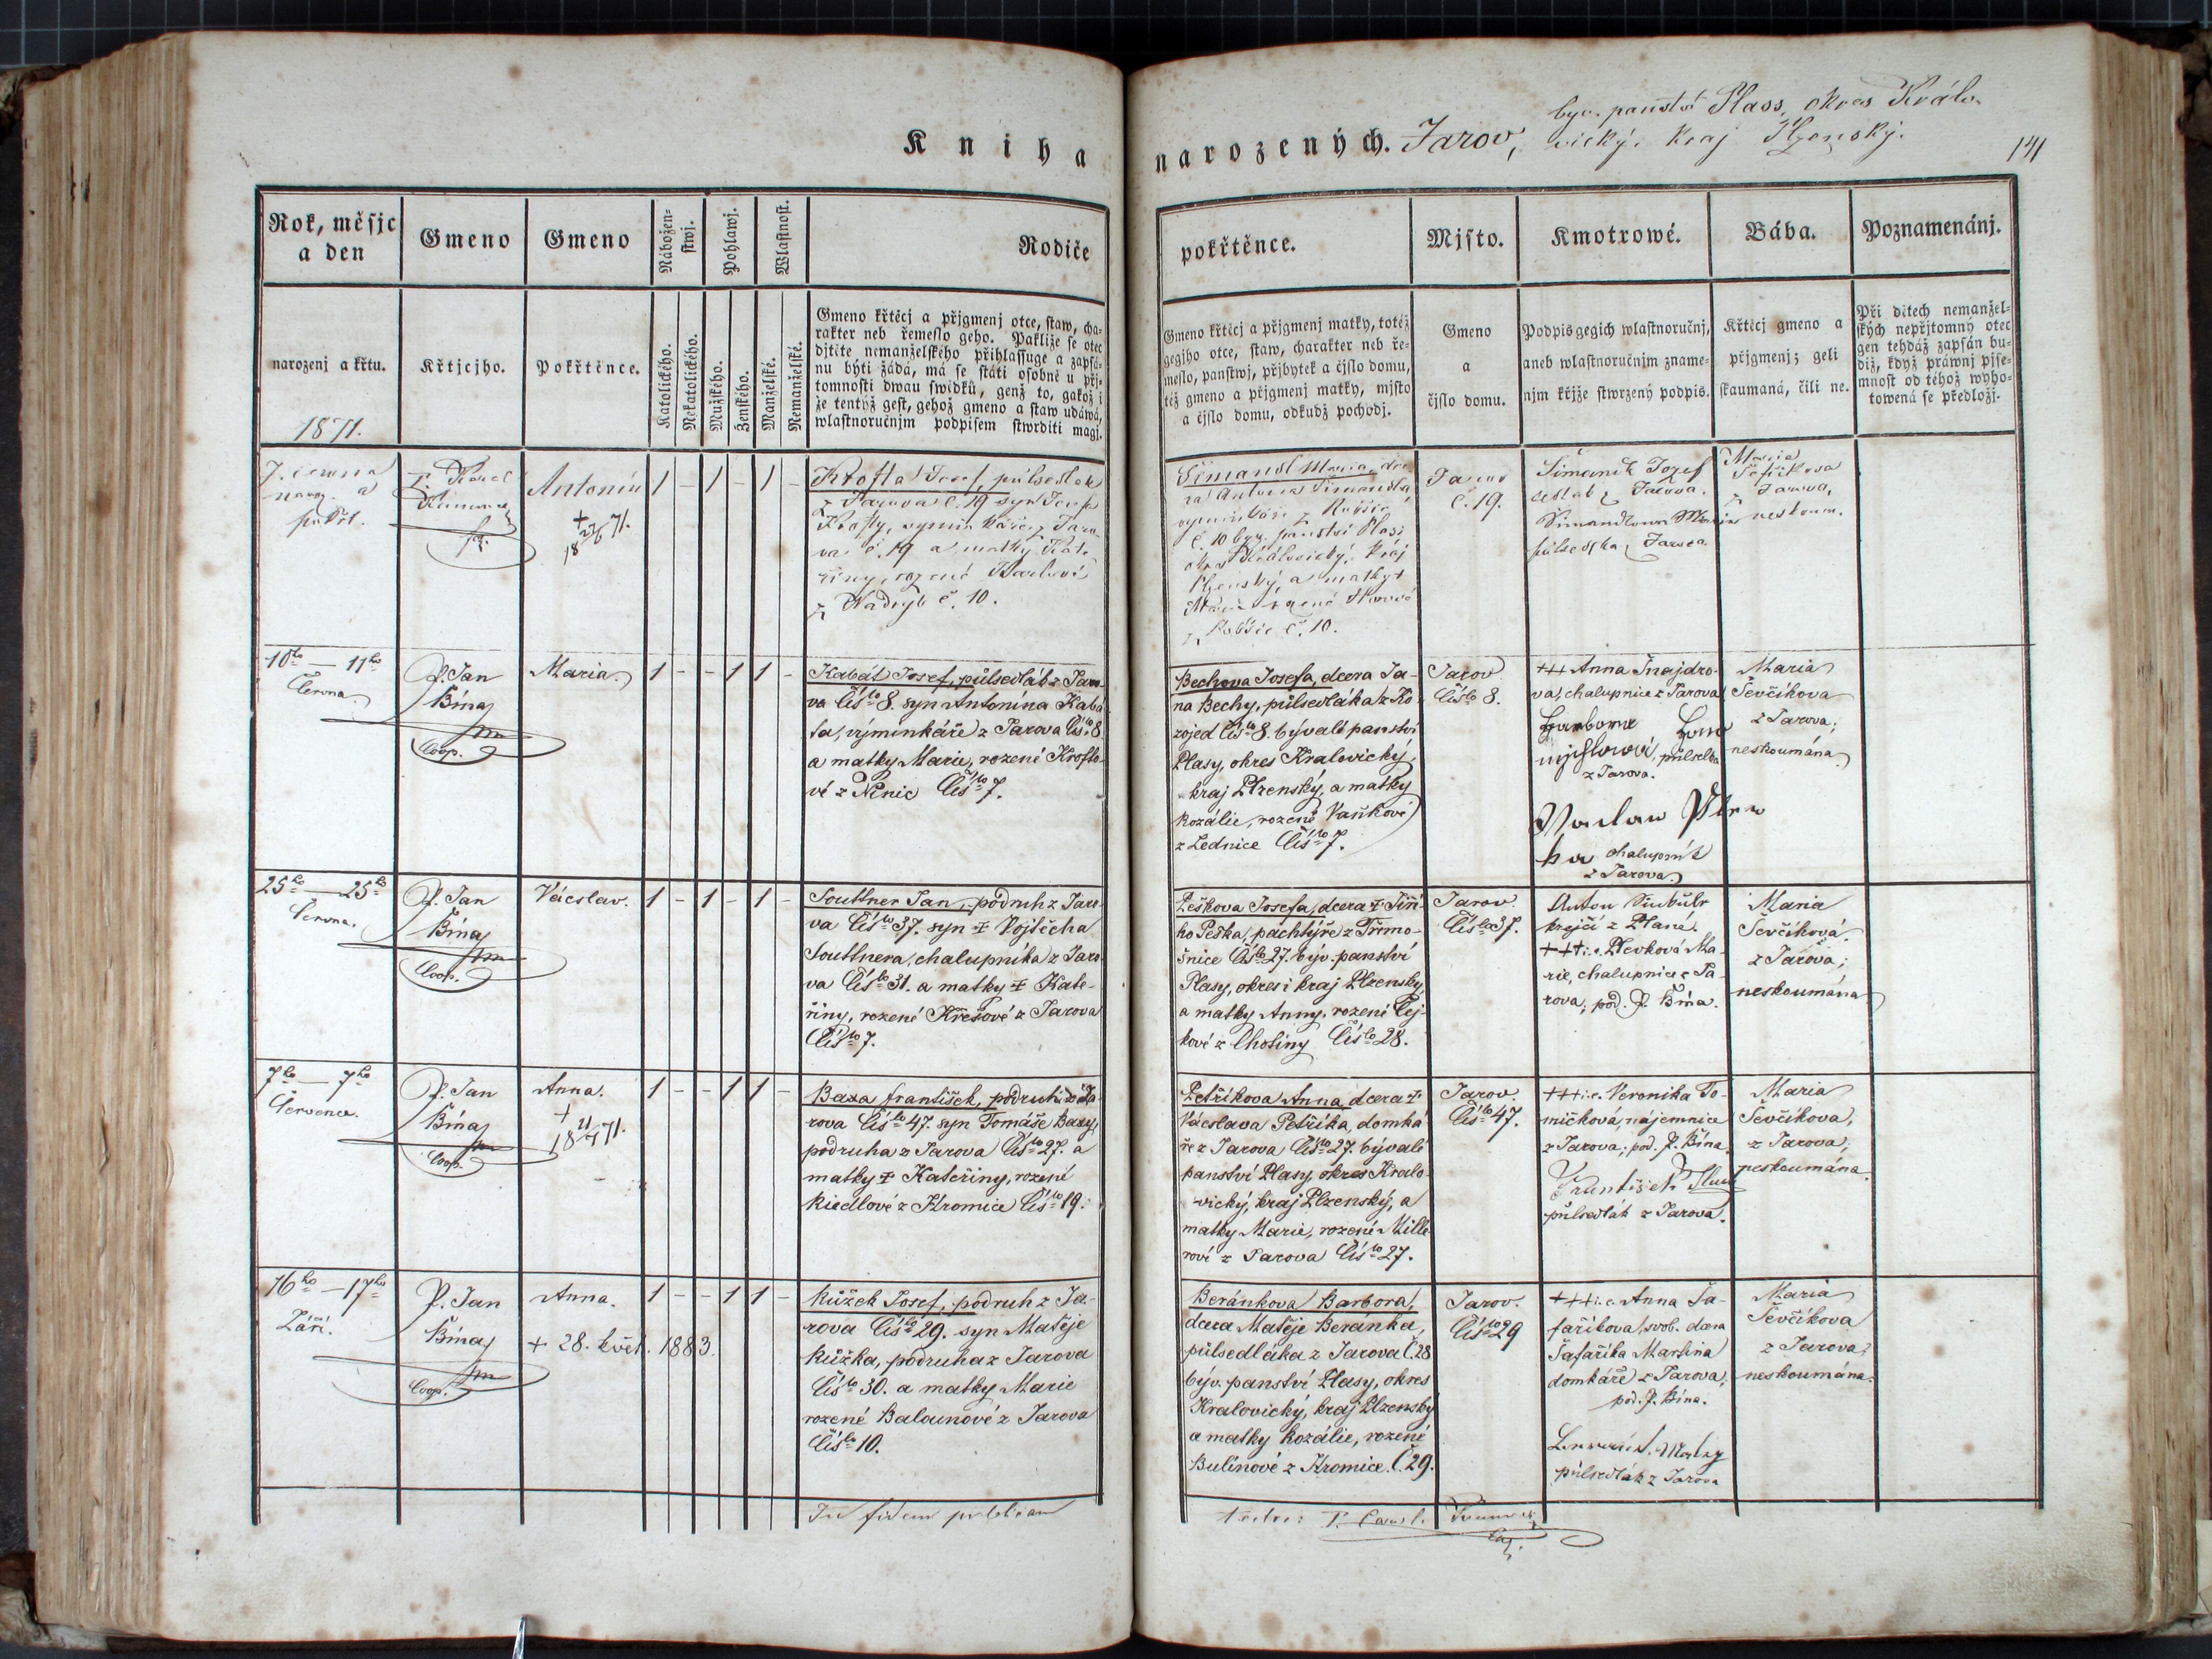 Kniha
narozených. Jarov, býv. panství Plass, okres Králo-
vický, kraj Plzenský.
141
Rok, měsjc
a den
narozenj a křtu.
1871.
Gmeno
Křtjcjho.
Gmeno
Pokřtěnce.
Nábožen-
stwj.
Katolického.
Nekatolického.
Pohlawj.
Mužského.
Ženského.
Wlastnost.
Manželské.
Nemanželské.
Rodiče
Gmeno křtěcj a přjgmenj otce, staw, cha-
rakter neb řemeslo geho. Pakliže se otec
djtěte nemanželského přihlassuge a zapsá-
nu býti žádá, má se státi osobně u přj-
tomnosti dwau swědků, genž to, gakož i
že tentýž gest, gehož gmeno a staw udáwá,
wlastnoručnjm podpisem stwrditi magj.
pokřtěnce.
Gmeno křtěcj a přjgmenj matky, totéž
gegjho otce, staw, charakter neb ře-
meslo, panstwj, přjbytek a čjslo domu,
též gmeno a přjgmenj matky, mjsto
a čjslo domu, odkudž pochodj.
Mjsto.
Gmeno
a
čjslo domu.
Kmotrowé.
Podpis gegich wlastnoručnj,
aneb wlastnoručnjm zname-
njm křjže stwrzený podpis.
Bába.
Křtěcj gmeno a
přjgmenj; geli
skaumaná, čili ne.
Poznamenánj.
Při dětech nemanžel-
ských nepřjtomný otec
gen tehdáž zapsán bu-
diž, když práwnj pjse-
mnost od téhož wyho-
towená se předložj.
7. června
naroz. a
pokřt.
P. Karel
Antonín
+
18 27/6 71.
1 - 1 - 1 -
Krofta Josef, půlsedlák
z Jarova č. 19 syn Josefa
Krofty, výminkáře z Jaro-
va č. 19 a matky Kate-
řiny, rozené
z Nadryb č. 10.
Šimandl Maria, dce-
ra Antona Šimandla,
výminkáře z
č. 10 býv. panství Plasy
okres Královický, kraj
Plzenský, a matky
Marie rozené
z č. 10.
Jarov
č. 19.
Šimaník Josef
sedlák z Jarova.
Šimandlowa Marie
půlsedlka z Jarova.
Maria
Ševčíkova
z Jarova,
neskoum.
10ho — 11ho
Června.
P. Jan
Bína
Coop.
Maria.
1 - - 1 1 -
Kabát Josef, půlsedlák z Jaro-
va Číslo 8. syn Antonína Kabá-
ta, výminkáře z Jarova Číslo 8
a matky Marie, rozené Krofto-
vé z Nenic Číslo 7.
Bechova Josefa, dcera Ja-
na Bechy, půlsedláka z Ko-
zojed Číslo 8. bývalé panství
Plasy, okres Kralovický,
kraj Plzenský, a matky
Rozálie, rozené Vaňkové
z Lednice Číslo 7.
Jarov
Číslo 8.
+++ Anna Šnajdro-
va, chalupnice z Jarova
půlselka
z Jarova.
Waclaw
chalupník
z Jarova.
Maria
Ševčíkova
z Jarova;
neskoumána
25ho — 25ho
Června.
P. Jan
Bína
Coop.
Vácslav.
1 - 1 - 1 -
Souttner Jan, podruh z Jaro-
va Číslo 37. syn + Vojtěcha
Souttnera, chalupníka z Jaro-
va Číslo 31. a matky + Kate-
řiny, rozené Křešové z Jarova
Číslo 7.
Peškova Josefa, dcera + Jiří-
ho Peška, pachtýře z Třemo-
šnice Číslo 27. býv. panství
Plasy, okres i kraj Plzenský,
a matky Anny, rozené Čej-
kové z Lhotiny Číslo 28.
Jarov.
Číslo 37.
Anton
krejčí z Plané.
+++ i. e. Plevková Ma-
rie, chalupnice z Ja-
rova, pod. P. Bína.
Maria
Ševčíková.
z Jarova;
neskoumána
7ho — 7ho
Července.
P. Jan
Bína
Coop.
Anna.
+
18 21/7 71.
1 - - 1 1 -
Baxa František, podruh z Ja-
rova Číslo 47. syn Tomáše Baxy,
podruha z Jarova Číslo 27. a
matky + Kateřiny, rozené
Riedlové z Hromice Číslo 19.
Petříkova Anna, dcera +
Václava Petříka, domká-
ře z Jarova Číslo 27. bývalé
panství Plasy, okres Kralo-
vický, kraj Plzenský, a
matky Marie, rozené Mille-
rové z Jarova Číslo 27.
Jarov.
Číslo 47.
+++ i. e. Veronika To-
míčková, nájemnice
z Jarova, pod. P. Bína
František
půlsedlák z Jarova.
Maria
Ševčíkova,
z Jarova;
neskoumána.
16ho — 17ho
Září.
P. Jan
Bína
Coop.
Anna.
+ 28. květ. 1883.
1 - - 1 1 -
Růžek Josef, podruh z Ja-
rova Číslo 29. syn Matěje
Růžka, podruha z Jarova
Číslo 30. a matky Marie
rozené Balounové z Jarova
Číslo 10.
Beránkova Barbora,
dcera Matěje Beránka,
půlsedláka z Jarova Č. 28
býv. panství Plasy, okres
Kralovický, kraj Plzenský
a matky Rozálie, rozené
Bulínové z Hromice. Č. 29.
Jarov.
Číslo 29
+++ i. e. Anna Ša-
faříkova, svob. dcera
Šafaříka Martina
domkáře z Jarova,
pod. P. Bína.
půlsedlák z Jarova
Maria
Ševčíkova
z Jarova,
neskoumána.
In fidem publicam